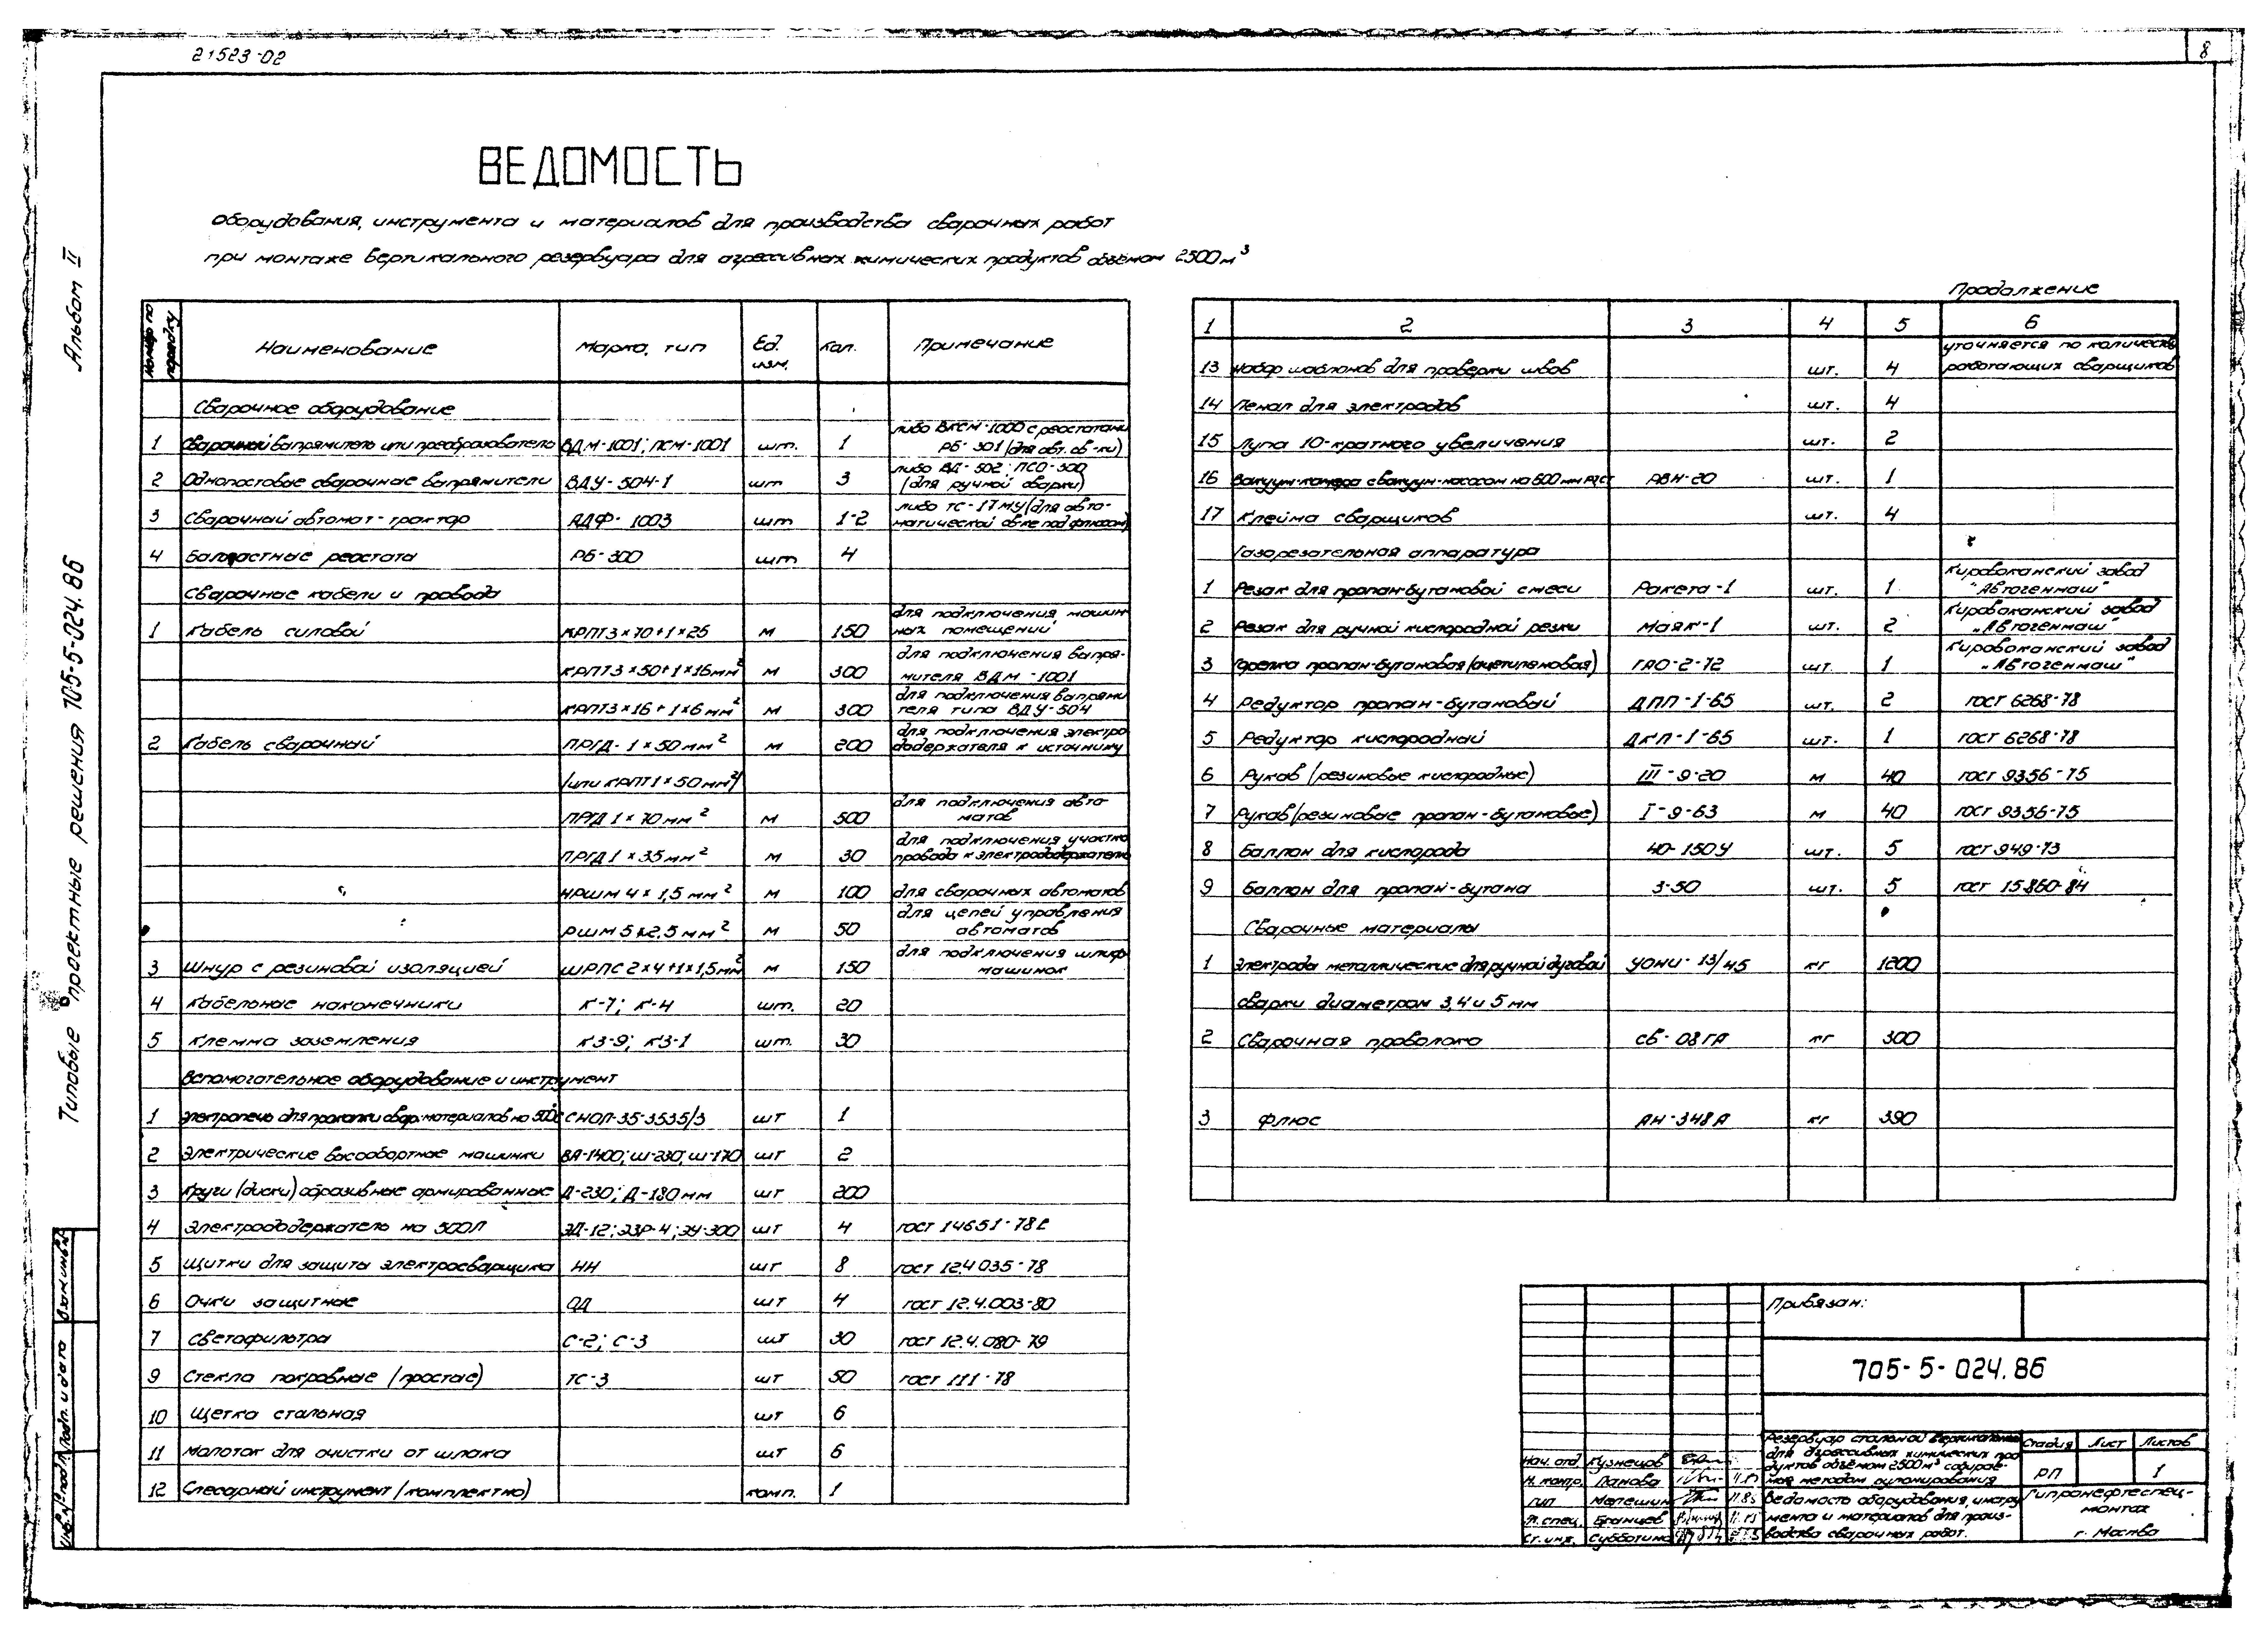 21523-02
8
Альбом II
Типовые проектные решения 705-5-024.86
ВЕДОМОСТЬ
оборудования, инструмента и материалов для производства сварочных работ
при монтаже вертикального резервуара для агрессивных химических продуктов объёмом 2500 м³
Номер по порядку Наименование Марка, тип Ед. изм. Кол. Примечание
Сварочное оборудование
1 Сварочный выпрямитель или преобразователь ВДМ-1001; ПСМ-1001 шт. 1 либо ВКСМ-1000 с реостатами РБ-301 (для авт. св-ки)
2 Однопостовые сварочные выпрямители ВДУ-504-1 шт 3 либо ВД-502; ПСО-300 (для ручной сварки)
3 Сварочный автомат-трактор АДФ-1003 шт 1-2 либо ТС-17МУ (для автоматической св-ке под флюсом)
4 Балластные реостаты РБ-300 шт 4
Сварочные кабели и провода
1 Кабель силовой КРПТ 3×70+1×25 м 150 для подключения машинных помещений
КРПТ 3×50+1×16 мм² м 300 для подключения выпрямителя ВДМ-1001
КРПТ 3×16+1×6 мм² м 300 для подключения выпрямителя типа ВДУ-504
2 Кабель сварочный ПРГД-1×50 мм² м 200 для подключения электрододержателя к источнику
(или КРПТ 1×50 мм²)
ПРГД 1×70 мм² м 500 для подключения автоматов
ПРГД 1×35 мм² м 30 для подключения участка провода к электрододержателю
НРШМ 4×1,5 мм² м 100 для сварочных автоматов
РШМ 5×2,5 мм² м 50 для цепей управления автоматов
3 Шнур с резиновой изоляцией ШРПС 2×4+1×1,5 мм² м 150 для подключения шлиф машинок
4 Кабельные наконечники К-7; К-4 шт. 20
5 Клемма заземления КЗ-9; КЗ-1 шт. 30
Вспомогательное оборудование и инструмент
1 Электропечь для прокалки свар. материалов на 500°С СНОЛ-35-3535/3 шт 1
2 Электрические высооборотные машинки ВА-1400; Ш-230; Ш-170 шт 2
3 Круги (диски) абразивные армированные Д-230; Д-180 мм шт 200
4 Электрододержатель на 500А ЭД-12; ЭЗР-4; ЭУ-300 шт 4 ГОСТ 14651-78Е
5 Щитки для защиты электросварщика НН шт 8 ГОСТ 12.4035-78
6 Очки защитные ОД шт 4 ГОСТ 12.4.003-80
7 Светофильтра С-2; С-3 шт 30 ГОСТ 12.4.080-79
9 Стекла покровные (простые) ТС-3 шт 50 ГОСТ 111-78
10 Щетка стальная шт 6
11 Молоток для очистки от шлака шт 6
12 Слесарный инструмент (комплектно) комп. 1
Продолжение
1 2 3 4 5 6
13 Набор шаблонов для проверки швов шт. 4 уточняется по количеству работающих сварщиков
14 Пенал для электродов шт. 4
15 Лупа 10-кратного увеличения шт. 2
16 Вакуум-камера с вакуум-насосом на 600 мм рт.ст АВН-20 шт. 1
17 Клейма сварщиков шт. 4
Газорезательная аппаратура
1 Резак для пропан-бутановой смеси Ракета-1 шт. 1 Кироваканский завод "Автогенмаш"
2 Резак для ручной кислородной резки Маяк-1 шт. 2 Кироваканский завод "Автогенмаш"
3 Горелка пропан-бутановая (ацетиленовая) ГАО-2-72 шт. 1 Кироваканский завод "Автогенмаш"
4 Редуктор пропан-бутановый ДПП-1-65 шт. 2 ГОСТ 6268-78
5 Редуктор кислородный ДКП-1-65 шт. 1 ГОСТ 6268-78
6 Рукав (резиновые кислородные) III-9-20 м 40 ГОСТ 9356-75
7 Рукав (резиновые пропан-бутановые) I-9-63 м 40 ГОСТ 9356-75
8 Баллон для кислорода 40-150У шт. 5 ГОСТ 949-73
9 Баллон для пропан-бутана 3-50 шт. 5 ГОСТ 15860-84
Сварочные материалы
1 Электроды металлические для ручной дуговой УОНИ-13/45 кг 1200
сварки диаметром 3,4 и 5 мм
2 Сварочная проволока СВ-08ГА кг 300
3 Флюс АН-348А кг 390
Взам.инв.№
Подп. и дата
Инв.№ подл.
Привязан:
705-5-024.86
Нач. отд Кузнецов
Н. контр. Панова
ГИП Мелешин 11.85
Гл. спец. Бранцев
Ст. инж. Субботина
Резервуар стальной вертикальный
для агрессивных химических про
дуктов объёмом 2500 м³ собирае-
мая методом рулонирования
Стадия Лист Листов
РП 1
Ведомость оборудования, инстру
мента и материалов для произ-
водства сварочных работ.
Гипронефтеспец-
монтаж
г. Москва